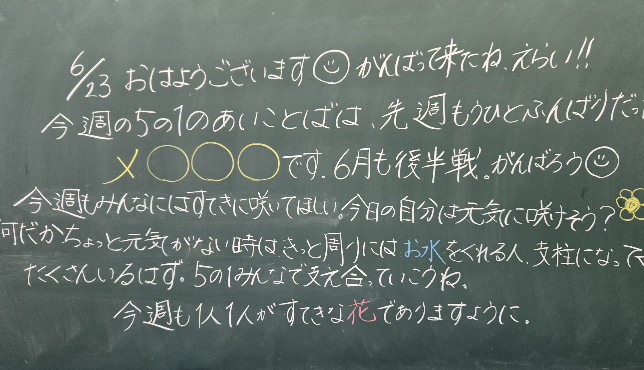 6/23 おはようございます がんばって来たね、えらい!!
今週の5の1のあいことばは、先週もうひとふんばりだっ
メ〇〇〇です。6月も後半戦。がんばろう
今週もみんなにはすてきに咲いてほしい。今日の自分は元気に咲けそう?
何だかちょっと元気がない時は、きっと周りにはお水をくれる人、支柱になって
たくさんいるはず。5の1みんなで支え合っていこうね。
今週も1人1人がすてきな花でありますように。